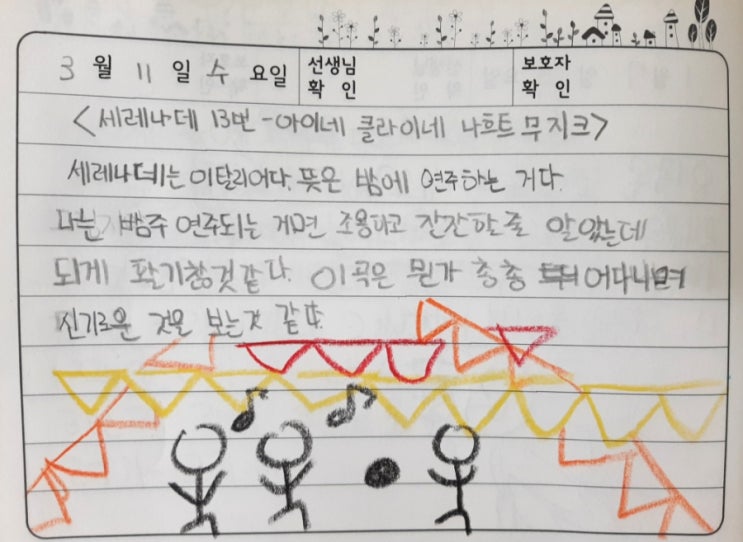 3월 11일 수요일 선생님 확인 보호자 확인
<세레나데 13번-아이네 클라이네 나흐트 무지크>
세레나데는 이탈리어다. 뜻은 밤에 연주하는 거다.
연주되는 게면 조용하고 잔잔할줄 알았는데
되게 활기찬것같다. 이곡은 뭔가 총총 뛰어다니며
신기로운 것을 보는것 같다.